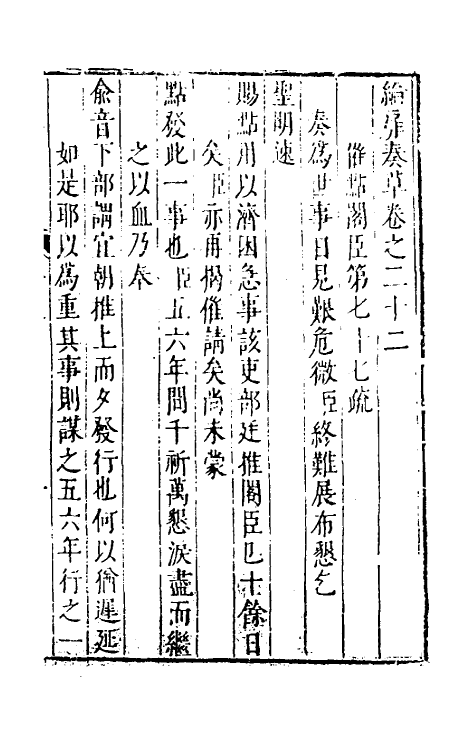 綸扉奏草卷之二十二
催點閣臣第七十七疏
奏爲世事日見艱危微臣終難展布懇乞
聖明速
賜點用以濟困急事該吏部廷推閣臣已十餘日
矣臣亦再揭催請矣尚未蒙
點發此一事也臣五六年間千祈萬懇淚盡而繼
之以血乃奉
俞音下部謂宜朝推上而夕發行也何以猶遲延
如是耶以爲重其事則謀之五六年行之一